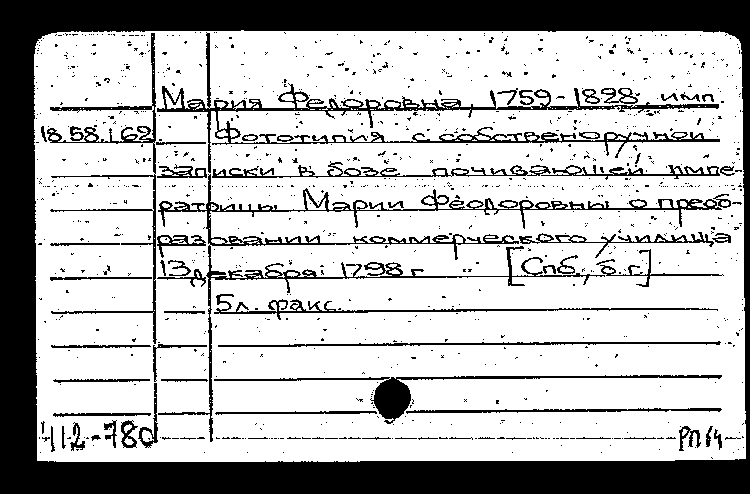 Мария Федоровна, 1759-1828, имп
18.58.1.62. Фототипия с собственоручной
записки в бозе почивающей импе-
ратрицы Марии Феодоровны о преоб-
разовании коммерческого училища
13 декабря 1798 г [Спб., б.г.]
5л. факс.
412-780 РП 64